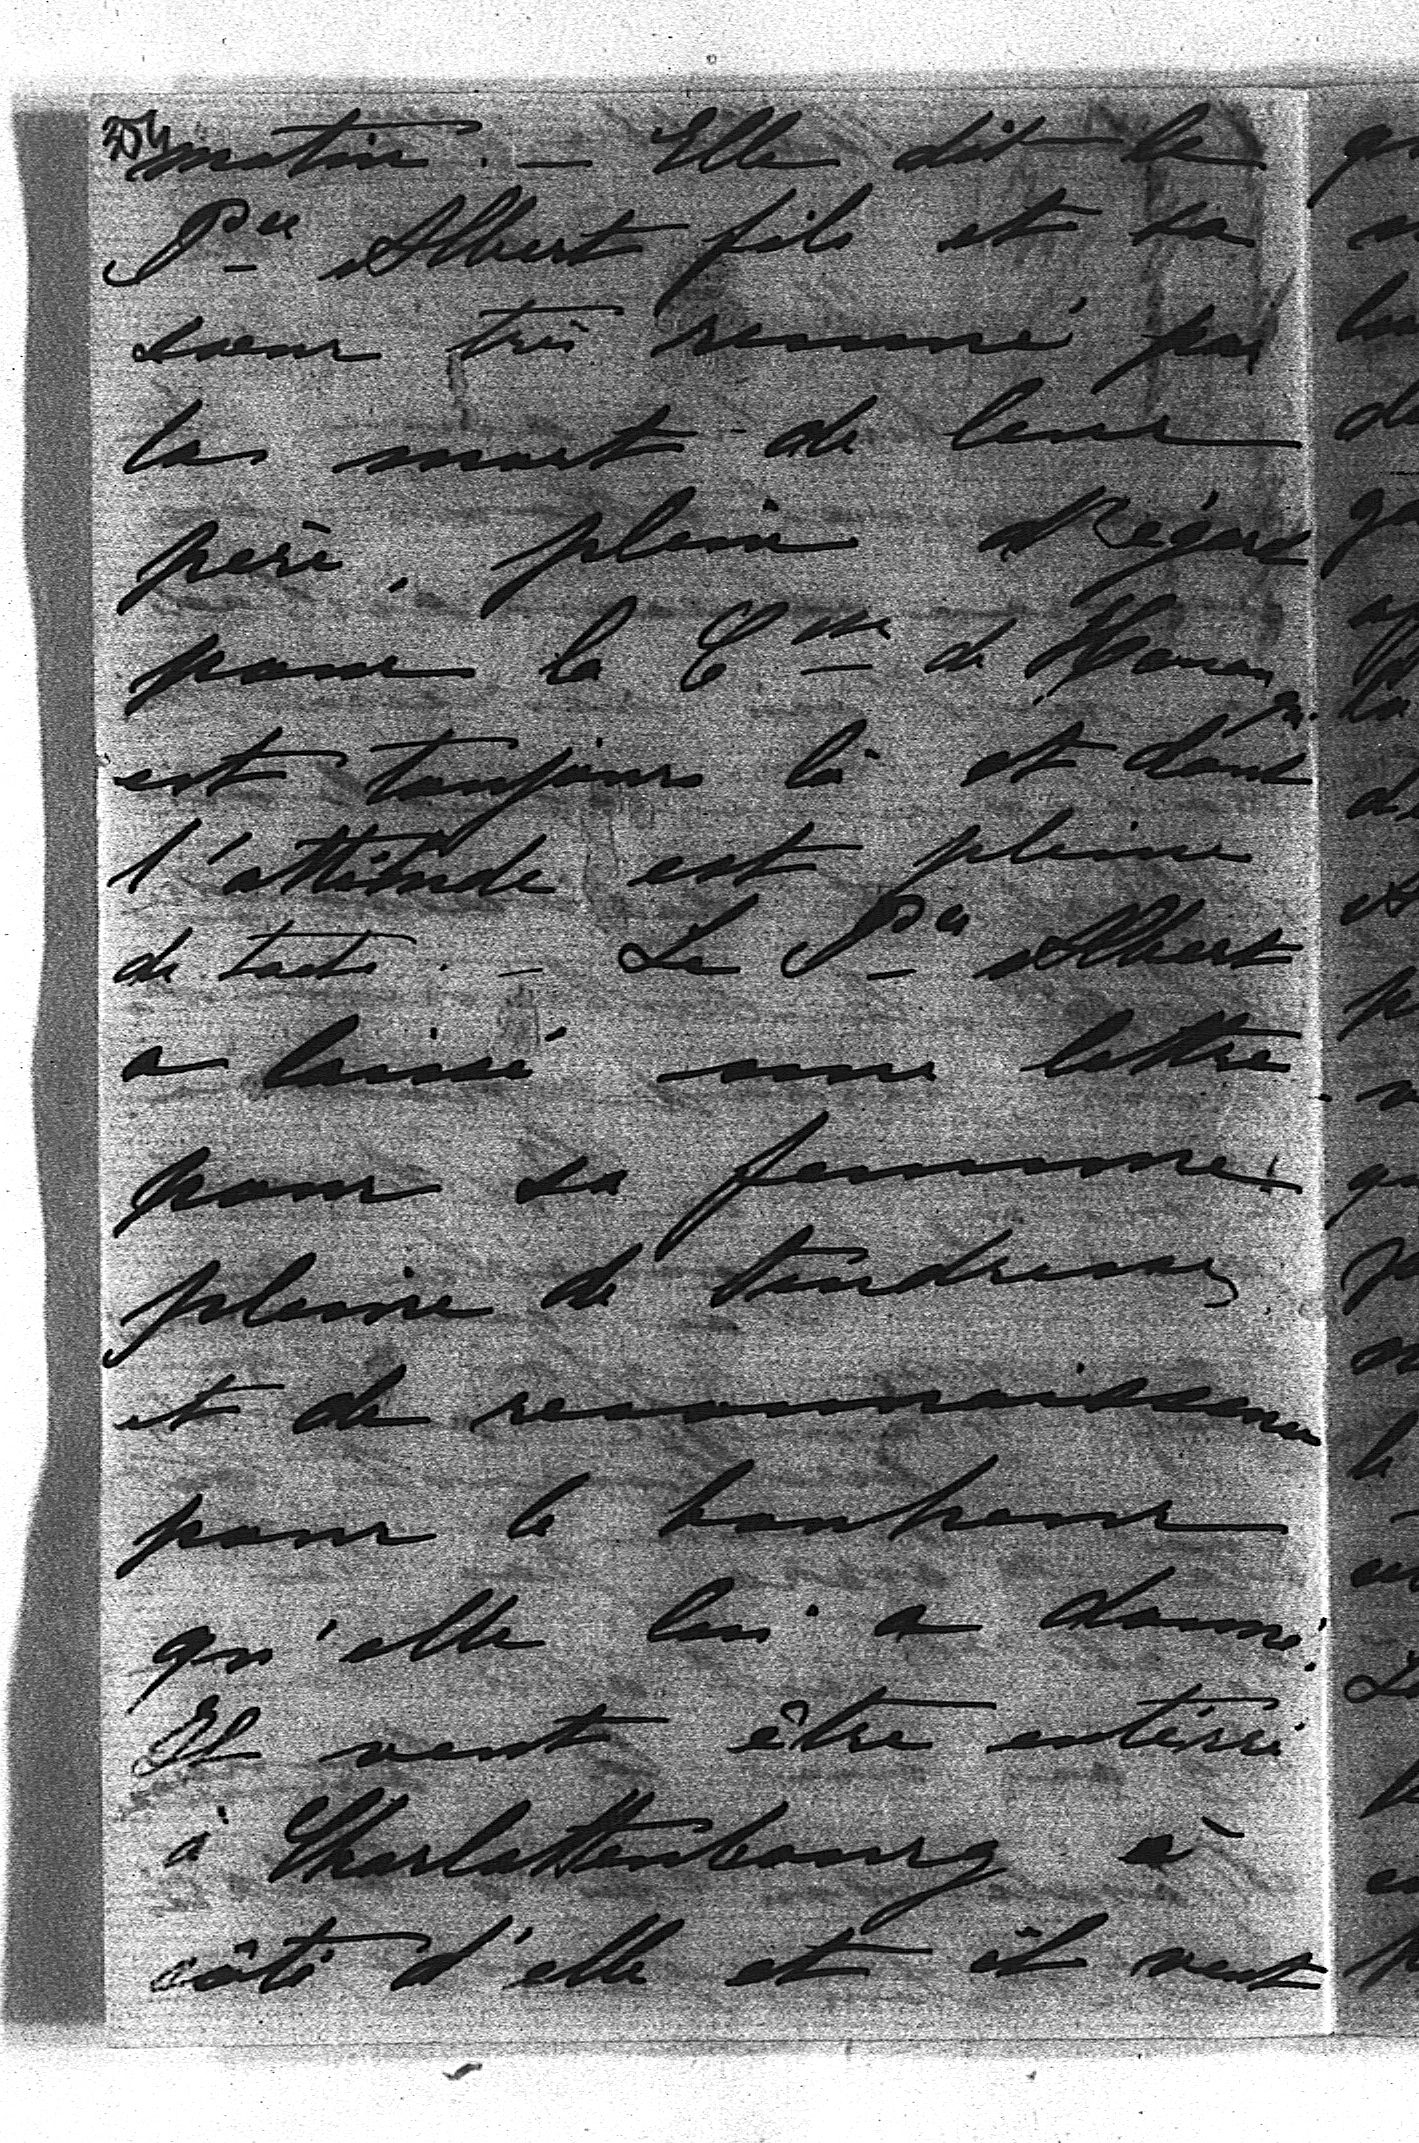 matin. — Elle dit le
Pce Albert fils et sa
soeur très remué par
la mort de leur
père, plein d'égard
pour la Ctesse de
est toujours là et dont
l'attitude est pleine
de tact. — Le Pce Albert
a laissé une lettre
pour sa femme,
pleine de tendresse,
et de reconnaissance
pour le bonheur
qu'elle lui a donné.
Il veut être enterré
à Charlottenbourg à
côté d'elle et il veut